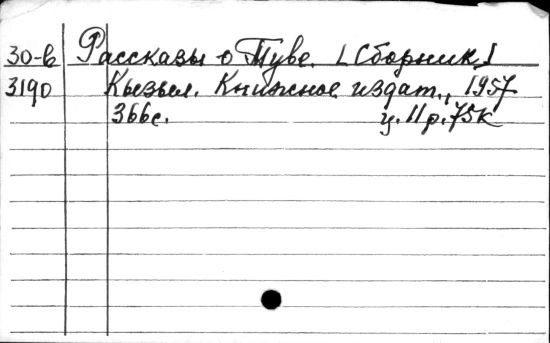 30-в Рассказы о Туве. [Сборник]
3190 Кызыл. Книжное издат., 1957
366с. ц. 11 р. 75к